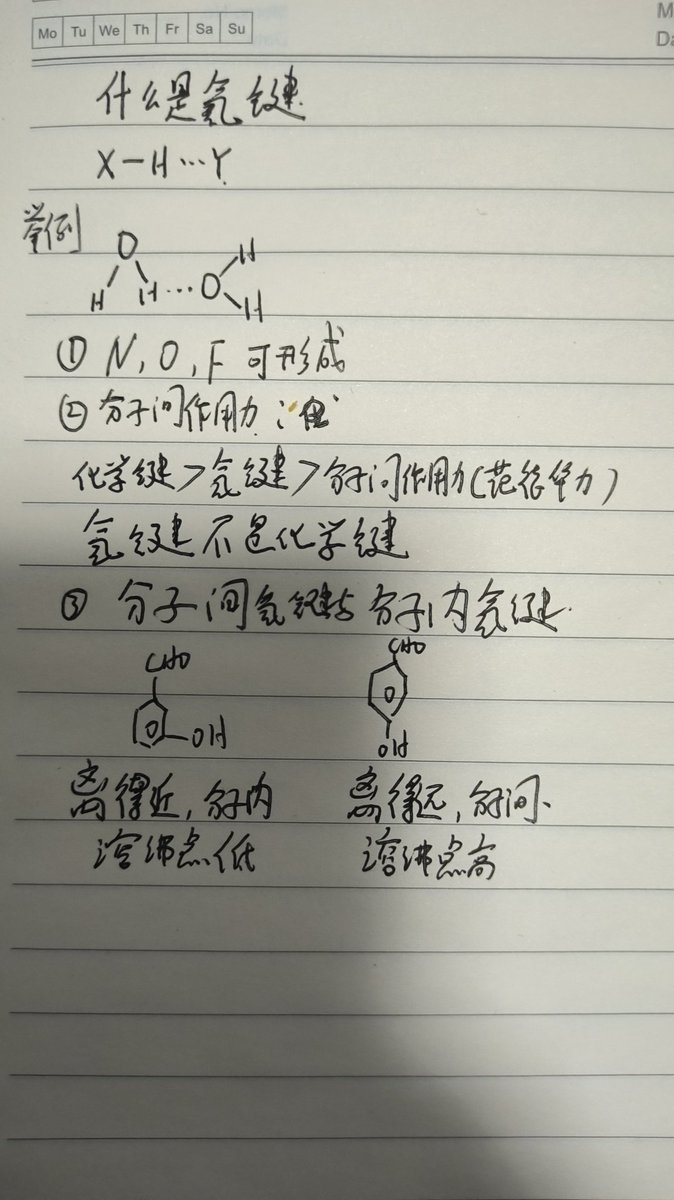 Mo Tu We Th Fr Sa Su
M
Da
什么是氢键
X-H…Y
举例
O H
H H…O
H
① N,O,F可形成
②分子间作用力:
化学键>氢键>分子间作用力(范德华力)
氢键不是化学键
③ 分子间氢键与分子内氢键.
CHO CHO
OH
OH
离得近,分子内 离得远,分子间、
溶沸点低 溶沸点高